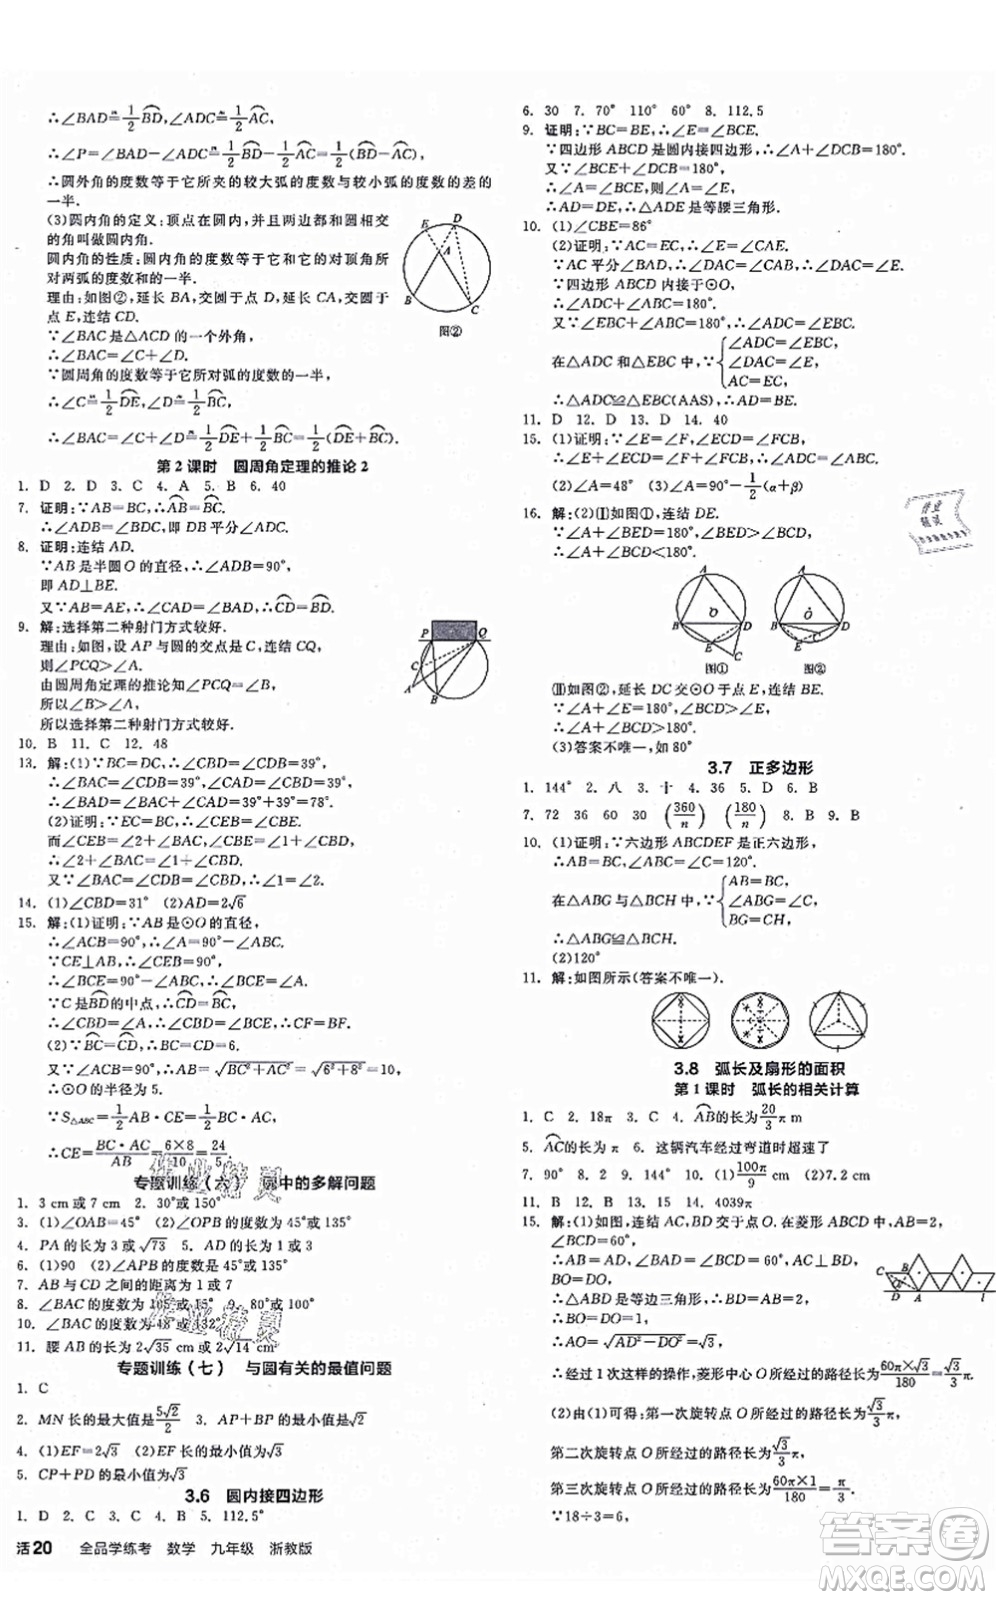 ∴∠BAD≝1/2 B͡D,∠ADC≝1/2 A͡C,
∴∠P=∠BAD-∠ADC≝1/2 B͡D-1/2 A͡C=1/2(B͡D-A͡C),
∴圆外角的度数等于它所夹的较大弧的度数与较小弧的度数的差的
一半.
(3)圆内角的定义:顶点在圆内,并且两边都和圆相交
的角叫做圆内角.
圆内角的性质:圆内角的度数等于它和它的对顶角所
对两弧的度数和的一半.
理由:如图②,延长 BA,交圆于点 D,延长 CA,交圆
于点 E,连结 CD.
∵∠BAC是△ACD的一个外角,
∴∠BAC=∠C+∠D.
∵圆周角的度数等于它所对弧的度数的一半,
∴∠C≝1/2 D͡E,∠D≝1/2 B͡C,
∴∠BAC=∠C+∠D≝1/2 D͡E+1/2 B͡C=1/2(D͡E+B͡C).
E D A B C
图②
第2课时 圆周角定理的推论2
1. D 2. D 3. C 4. A 5. B 6. 40
7. 证明:∵AB=BC,∴A͡B=B͡C.
∴∠ADB=∠BDC,即DB平分∠ADC.
8. 证明:连结AD.
∵AB是半圆O的直径,∴∠ADB=90°,
即AD⊥BE.
又∵AB=AE,∴∠CAD=∠BAD,∴C͡D=B͡D.
9. 解:选择第二种射门方式较好.
理由:如图,设AP与圆的交点是C,连结CQ,
则∠PCQ>∠A.
由圆周角定理的推论知∠PCQ=∠B,
所以∠B>∠A,
所以选择第二种射门方式较好.
P Q C A B
10. B 11. C 12. 48
13. 解:(1)∵BC=DC,∴∠CBD=∠CDB=39°,
∴∠BAC=∠CDB=39°,∠CAD=∠CBD=39°,
∴∠BAD=∠BAC+∠CAD=39°+39°=78°.
(2)证明:∵EC=BC,∴∠CEB=∠CBE.
而∠CEB=∠2+∠BAC,∠CBE=∠1+∠CBD,
∴∠2+∠BAC=∠1+∠CBD.
又∵∠BAC=∠CBD,∴∠1=∠2.
14. (1)∠CBD=31° (2)AD=2√6
15. 解:(1)证明:∵AB是⊙O的直径,
∴∠ACB=90°,∴∠A=90°-∠ABC.
∵CE⊥AB,∴∠CEB=90°,
∴∠BCE=90°-∠ABC,∴∠BCE=∠A.
∵C是B͡D的中点,∴C͡D=B͡C,
∴∠CBD=∠A,∴∠CBD=∠BCE,∴CF=BF.
(2)∵B͡C=C͡D,∴BC=CD=6.
又∵∠ACB=90°,∴AB=√(BC²+AC²)=√(6²+8²)=10,
∴⊙O的半径为5.
∵S△ABC=1/2 AB·CE=1/2 BC·AC,
∴CE=BC·AC/AB=6×8/10=24/5.
专题训练(六) 圆中的多解问题
1. 3 cm或7 cm 2. 30°或150°
3. (1)∠OAB=45° (2)∠OPB的度数为45°或135°
4. PA的长为3或√73 5. AD的长为1或3
6. (1)90 (2)∠APB的度数为45°或135°
7. AB与CD之间的距离为1或7
8. ∠BAC的度数为105°或15° 9. 80°或100°
10. ∠BAC的度数为48°或132°
11. 腰AB的长为2√35 cm或2√14 cm
专题训练(七) 与圆有关的最值问题
1. C
2. MN长的最大值是5√2/2 3. AP+BP的最小值是√2
4. (1)EF=2√3 (2)EF长的最小值为√3
5. CP+PD的最小值为√3
3.6 圆内接四边形
1. D 2. C 3. C 4. B 5. 112.5°
活20 全品学练考 数学 九年级 浙教版
6. 30 7. 70° 110° 60° 8. 112.5
9. 证明:∵BC=BE,∴∠E=∠BCE.
∵四边形ABCD是圆内接四边形,∴∠A+∠DCB=180°.
又∵∠BCE+∠DCB=180°,
∴∠A=∠BCE,则∠A=∠E,
∴AD=DE,∴△ADE是等腰三角形.
10. (1)∠CBE=86°
(2)证明:∵AC=EC,∴∠E=∠CAE.
∵AC平分∠BAD,∴∠DAC=∠CAE=∠E.
∵四边形ABCD内接于⊙O,
∴∠ADC+∠ABC=180°.
又∵∠EBC+∠ABC=180°,∴∠ADC=∠EBC.
在△ADC和△EBC中,∵{∠ADC=∠EBC,
∠DAC=∠E,
AC=EC,
∴△ADC≌△EBC(AAS),∴AD=BE.
11. D 12. D 13. D 14. 40
15. (1)证明:∵∠E=∠F,∠DCE=∠BCF,
∠ADC=∠E+∠DCE,∠ABC=∠F+∠BCF,
∴∠ADC=∠ABC.
(2)∠A=48° (3)∠A=90°-1/2(α+β)
16. 解:(2)(Ⅰ)如图①,连结DE.
∵∠A+∠BED=180°,∠BED>∠BCD,
∴∠A+∠BCD<180°.
A O B D E C
图①
A O B D C E
图②
(Ⅱ)如图②,延长DC交⊙O于点E,连结BE.
∵∠A+∠E=180°,∠BCD>∠E,
∴∠A+∠BCD>180°.
(3)答案不唯一,如80°
3.7 正多边形
1. 144° 2. 八 3. 十 4. 36 5. D 6. B
7. 72 36 60 30 (360/n) (180/n) 8. B 9. B
10. (1)证明:∵六边形ABCDEF是正六边形,
∴AB=BC,∠ABC=∠C=120°.
在△ABG与△BCH中,∵{AB=BC,
∠ABG=∠C,
BG=CH,
∴△ABG≌△BCH.
(2)120°
11. 解:如图所示(答案不唯一).
3.8 弧长及扇形的面积
第1课时 弧长的相关计算
1. C 2. 18π 3. C 4. A͡B的长为20/3 π m
5. A͡C的长为π 6. 这辆汽车经过弯道时超速了
7. 90° 8. 144° 9. 8π 10. (1)100π/9 cm (2)7.2 cm
11. B 12. B 13. 15 14. 4039π
15. 解:(1)如图,连结AC,BD交于点O.在菱形ABCD中,AB=2,
∠BCD=60°,
∴AB=AD=2,∠BAD=60°,AC⊥BD,
BO=DO=1/2 BD,
∴△ABD是等边三角形,∴BD=2,
∴BO=DO=1,
∴AO=√(AD²-DO²)=√3,
C B O D A l
∴经过1次这样的操作,菱形中心O所经过的路径长为60π×√3/180=√3/3 π.
(2)由(1)可得:第一次旋转点O所经过的路径长为√3/3 π,
第二次旋转点O所经过的路径长为√3/3 π,
第三次旋转点O所经过的路径长为60π×1/180=π/3.
∵18÷3=6,
作业精灵
答案圈
MXQE.COM